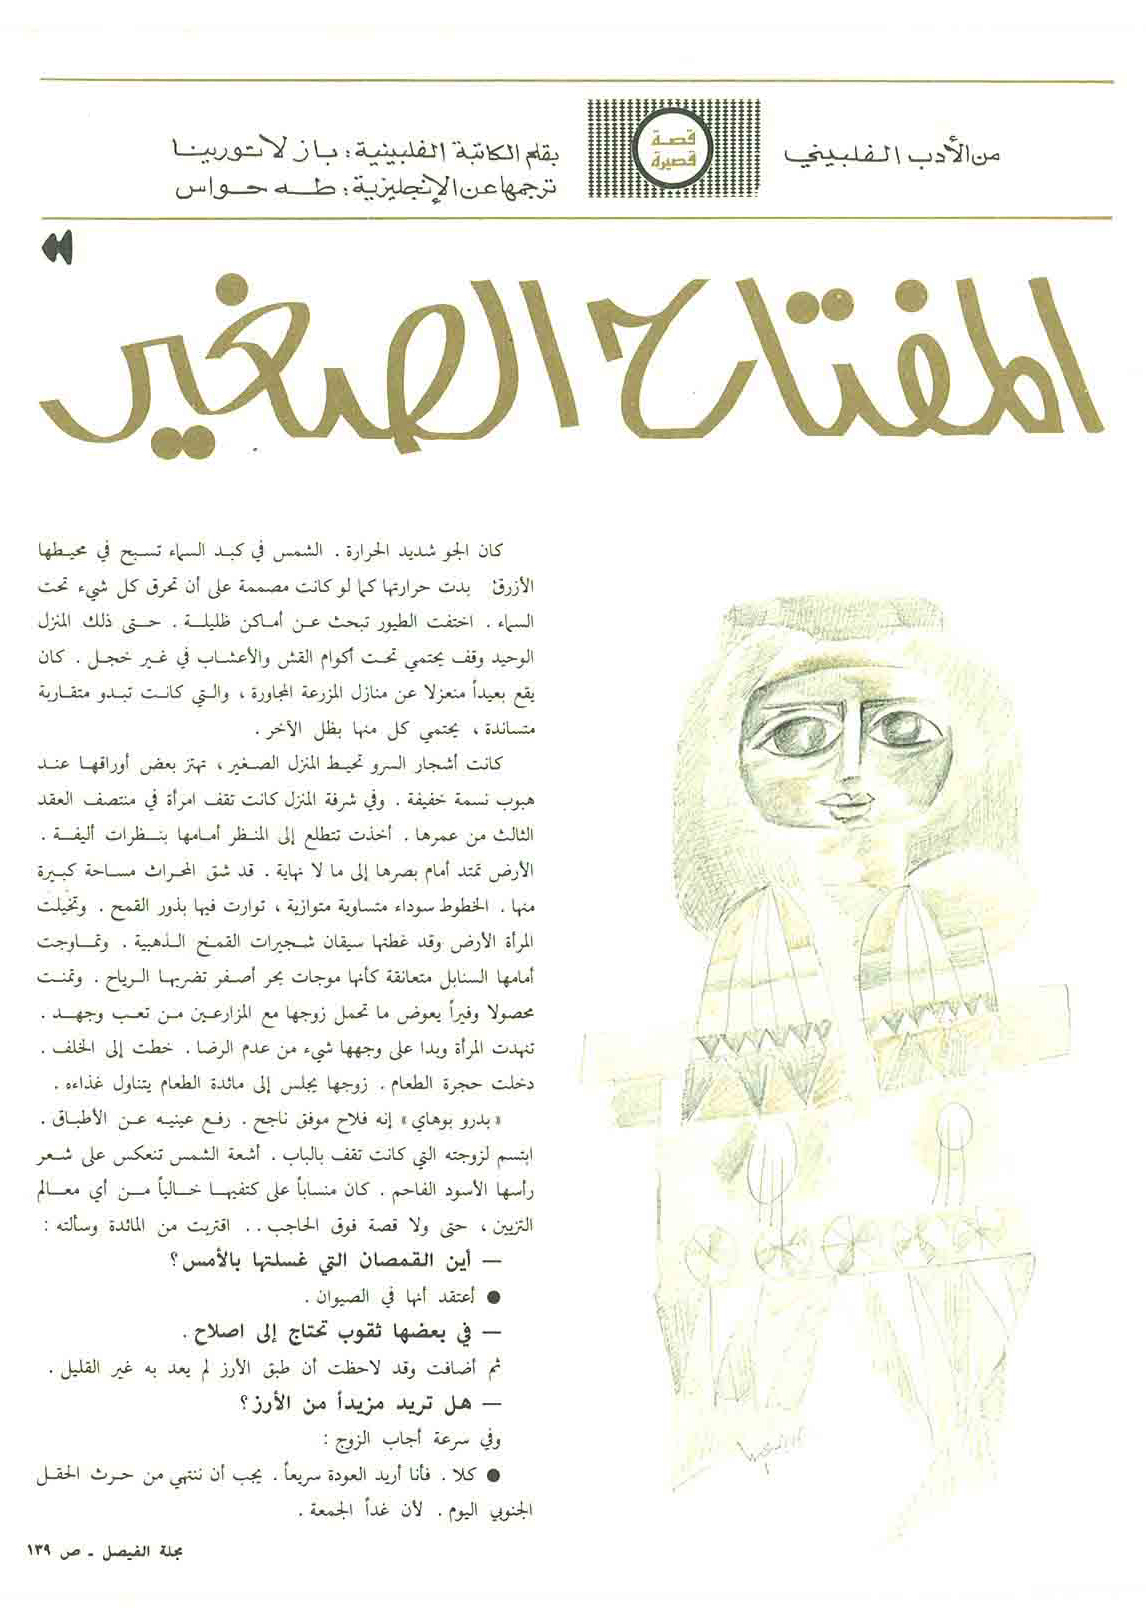 من الأدب الفلبيني
قصة
قصيرة
بقلم الكاتبة الفلبينية: باز لاتورينا
ترجمها عن الإنجليزية: طه حواس
المفتاح الصغير
كان الجو شديد الحرارة . الشمس في كبد السماء تسبح في محيطها
الأزرق بدت حرارتها كما لو كانت مصممة على أن تحرق كل شيء تحت
السماء . اختفت الطيور تبحث عن أماكن ظليلة . حتى ذلك المنزل
الوحيد وقف يحتمي تحت أكوام القش والأعشاب في غير خجل . كان
يقع بعيداً منعزلا عن منازل المزرعة المجاورة ، والتي كانت تبدو متقاربة
متساندة ، يحتمي كل منها بظل الآخر .
كانت أشجار السرو تحيط المنزل الصغير ، تهتز بعض أوراقها عند
هبوب نسمة خفيفة . وفي شرفة المنزل كانت تقف امرأة في منتصف العقد
الثالث من عمرها . أخذت تتطلع إلى المنظر أمامها بنظرات أليفة .
الأرض تمتد أمام بصرها إلى ما لا نهاية . قد شق المحراث مساحة كبيرة
منها . الخطوط سوداء متساوية متوازية ، توارت فيها بذور القمح . وتخيلت
المرأة الأرض وقد غطتها سيقان شجيرات القمح الذهبية . وتماوجت
أمامها السنابل متعانقة كأنها موجات بحر أصفر تضربها الرياح . وتمنت
محصولا وفيراً يعوض ما تحمل زوجها مع المزارعين من تعب وجهد .
تنهدت المرأة وبدا على وجهها شيء من عدم الرضا . خطت إلى الخلف .
دخلت حجرة الطعام . زوجها يجلس إلى مائدة الطعام يتناول غذاءه .
«بدرو بوهاي» إنه فلاح موفق ناجح . رفع عينيه عن الأطباق .
ابتسم لزوجته التي كانت تقف بالباب . أشعة الشمس تنعكس على شعر
رأسها الأسود الفاحم . كان منساباً على كتفيها خالياً من أي معالم
التزيين ، حتى ولا قصة فوق الحاجب .. اقتربت من المائدة وسألته :
— أين القمصان التي غسلتها بالأمس ؟
● أعتقد أنها في الصيوان .
— في بعضها ثقوب تحتاج إلى اصلاح .
ثم أضافت وقد لاحظت أن طبق الأرز لم يعد به غير القليل .
— هل تريد مزيداً من الأرز ؟
وفي سرعة أجاب الزوج :
● كلا . فأنا أريد العودة سريعاً . يجب أن ننتهي من حرث الحقل
الجنوبي اليوم . لأن غداً الجمعة .
مجلة الفيصل ـ ص ١٣٩